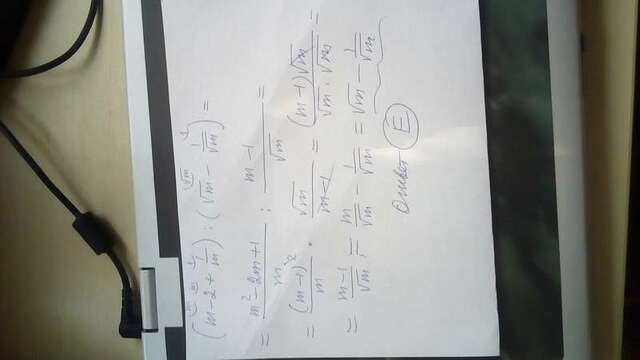 (m - 2 + 1/m) : (√m - 1/√m) =
= (m² - 2m + 1)/m : (m - 1)/√m =
= (m-1)²/m · √m/(m-1) = (m-1)√m/(√m · √m) =
= (m-1)/√m = m/√m - 1/√m = √m - 1/√m
Ответ E